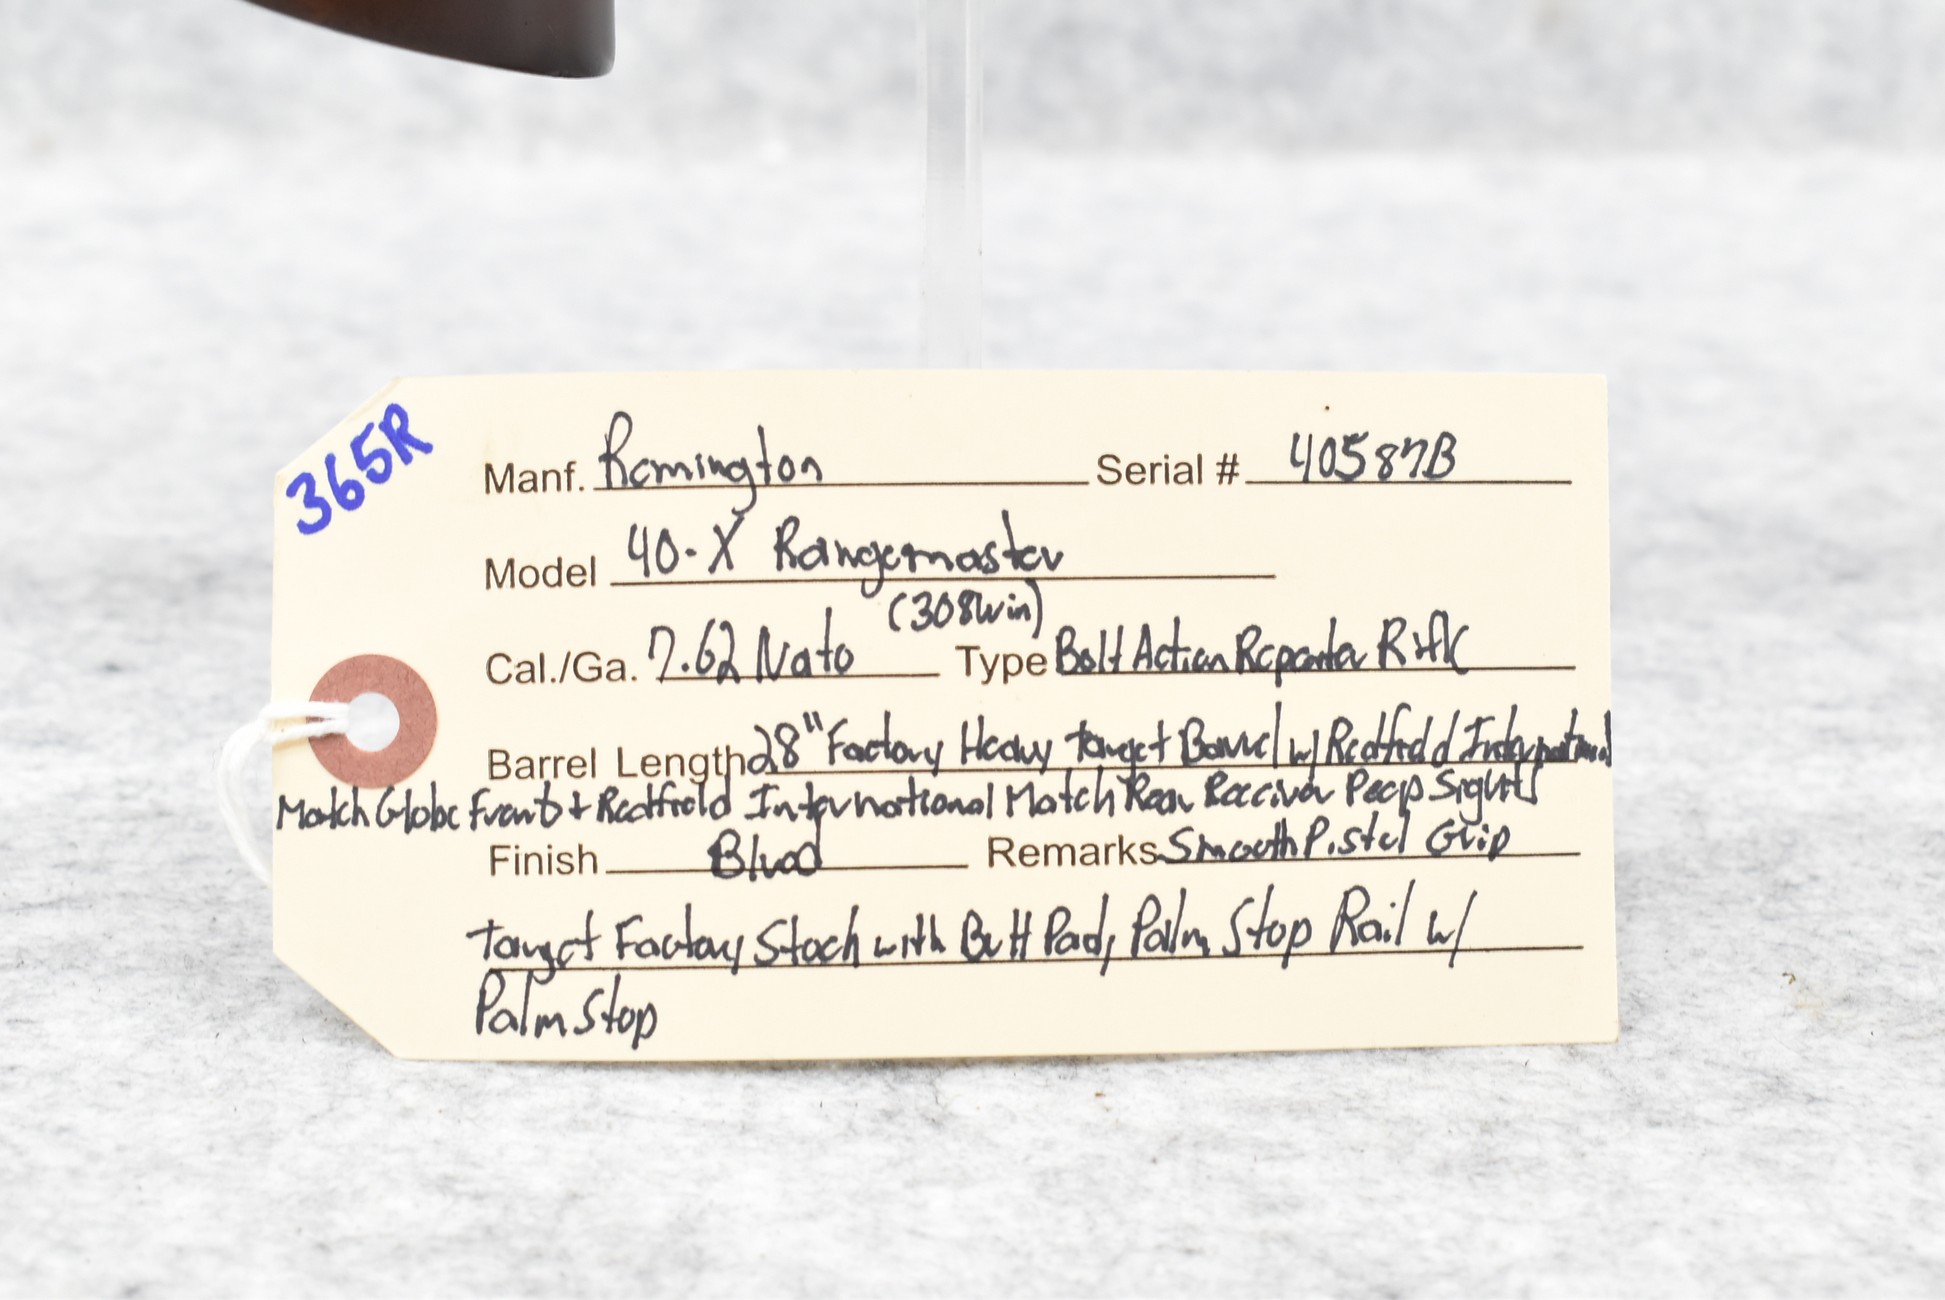 365R
Manf. Remington Serial # 40587B
Model 40-X Rangemaster
(308 Win)
Cal./Ga. 7.62 Nato Type Bolt Action Repeater Rifle
Barrel Length 28" Factory Heavy Target Barrel w/ Redfield International
Match Globe Front + Redfield International Match Rear Receiver Peep Sights
Finish Blued Remarks Smooth Pistol Grip
Target Factory Stock with Butt Pad, Palm Stop Rail w/
Palm Stop